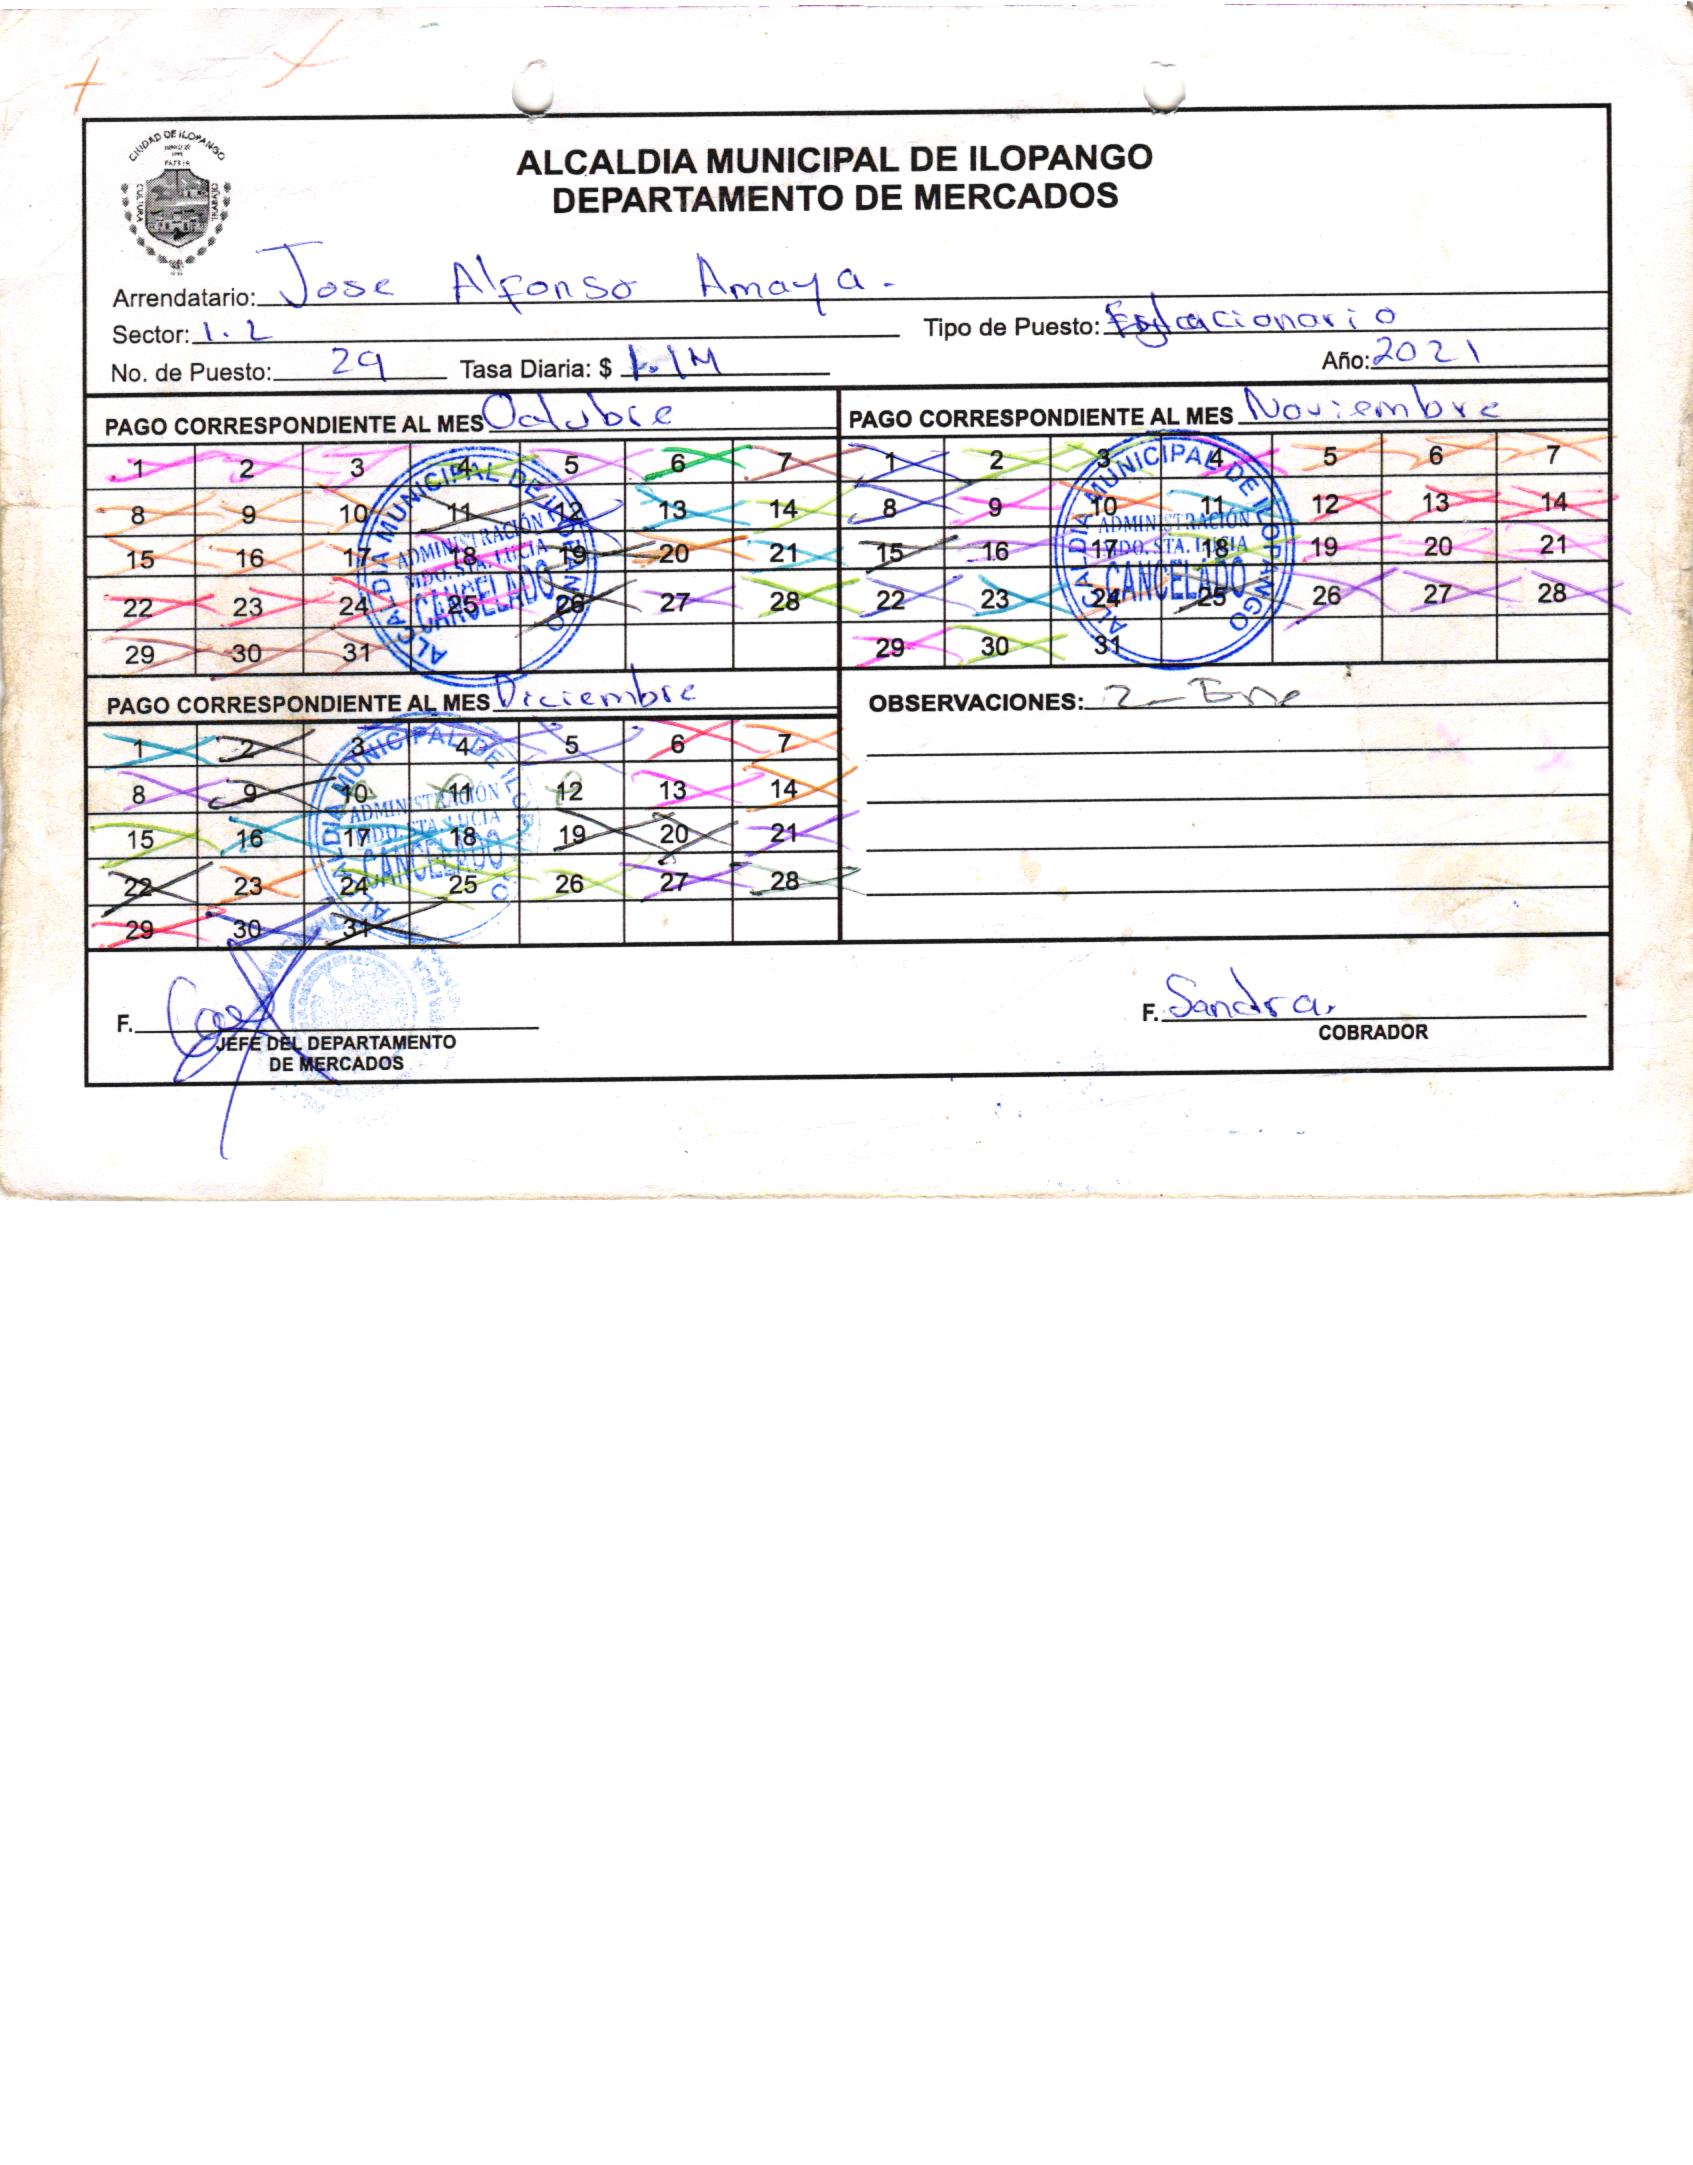 CIUDAD DE ILOPANGO
CULTURA
TRABAJO
ALCALDIA MUNICIPAL DE ILOPANGO
DEPARTAMENTO DE MERCADOS
Arrendatario: Jose Alfonso Amaya.
Sector: 1.2 Tipo de Puesto: Estacionario
No. de Puesto: 29 Tasa Diaria: $ 1.14 Año: 2021
PAGO CORRESPONDIENTE AL MES Octubre
1 2 3 4 5 6 7
8 9 10 11 12 13 14
15 16 17 18 19 20 21
22 23 24 25 26 27 28
29 30 31
ALCALDIA MUNICIPAL DE ILOPANGO
ADMINISTRACIÓN
MDO. STA. LUCIA
CANCELADO
PAGO CORRESPONDIENTE AL MES Noviembre
1 2 3 4 5 6 7
8 9 10 11 12 13 14
15 16 17 18 19 20 21
22 23 24 25 26 27 28
29 30 31
ALCALDIA MUNICIPAL DE ILOPANGO
ADMINISTRACIÓN
MDO. STA. LUCIA
CANCELADO
PAGO CORRESPONDIENTE AL MES Diciembre
1 2 3 4 5 6 7
8 9 10 11 12 13 14
15 16 17 18 19 20 21
22 23 24 25 26 27 28
29 30 31
ALCALDIA MUNICIPAL DE ILOPANGO
ADMINISTRACIÓN
MDO. STA. LUCIA
CANCELADO
OBSERVACIONES: 2 - Ene
F.
JEFE DEL DEPARTAMENTO
DE MERCADOS
F. Sandra.
COBRADOR